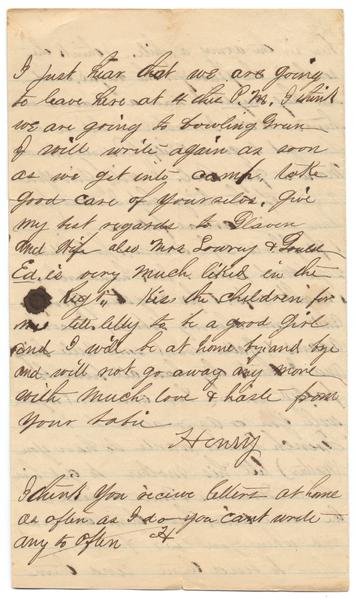 I just hear that we are going
to leave here at 4 this P.M. I think
we are going to bowling Green
I will write again as soon
as we get into camp, take
good care of yourselvs. Give
my best regards to
and Wife also Mrs. Lowry &
Ed. is very much liked in the
Regt,, Kiss the children for
me tell letty to be a good girl
and I will be at home by and bye
and will not go away any more
with much love & haste from
Your
Henry
I think You receive letters at home
as often as I do you cant write
any to often H